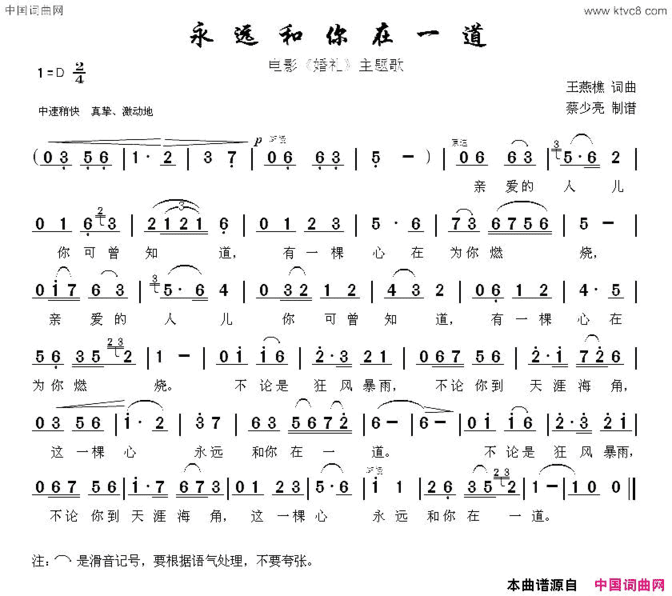 中国词曲网 www.ktvc8.com
永远和你在一道
电影《婚礼》主题歌
1=D 2/4
王燕樵 词曲
蔡少亮 制谱
中速稍快 真挚、激动地
(0 3 5 6 | 1· 2 | 3 7 | p 0 6 6 3 | 5 —) | 0 6 6 3 | 3 5·6 2 |
亲爱的人儿
0 1 6 2 3 | 2 1 2 1 6 | 0 1 2 3 | 5· 6 | 7 3 6 7 5 6 | 5 — |
你可曾知道, 有一棵心在为你燃烧,
0 i 7 6 3 | 3 5·6 4 | 0 3 2 2 1 | 4 3 2 | 0 6 1 2 | 4· 5 |
亲爱的人儿 你可曾知道, 有一棵心在
5 6 3 5 2 3 2 | 1 — | 0 i i 6 | 2·3 2 1 | 0 6 7 5 6 | i·7 7 2 6 |
为你燃烧。 不论是狂风暴雨, 不论你到天涯海角,
0 3 5 6 | i· 2 | 3 7 | 6 3 5 6 7 2 | 6 — | 6 — | 0 i i 6 | 2·3 2 i |
这一棵心 永远和你在一道。 不论是狂风暴雨,
0 6 7 5 6 | i·7 6 7 3 | 0 1 2 3 | 5· 6 | i 1 | 2 6 3 5 2 3 2 | 1 — | 1 0 0 ‖
不论你到天涯海角, 这一棵心 永远和你在一道。
注: ⌒ 是滑音记号,要根据语气处理,不要夸张。
本曲谱源自 中国词曲网